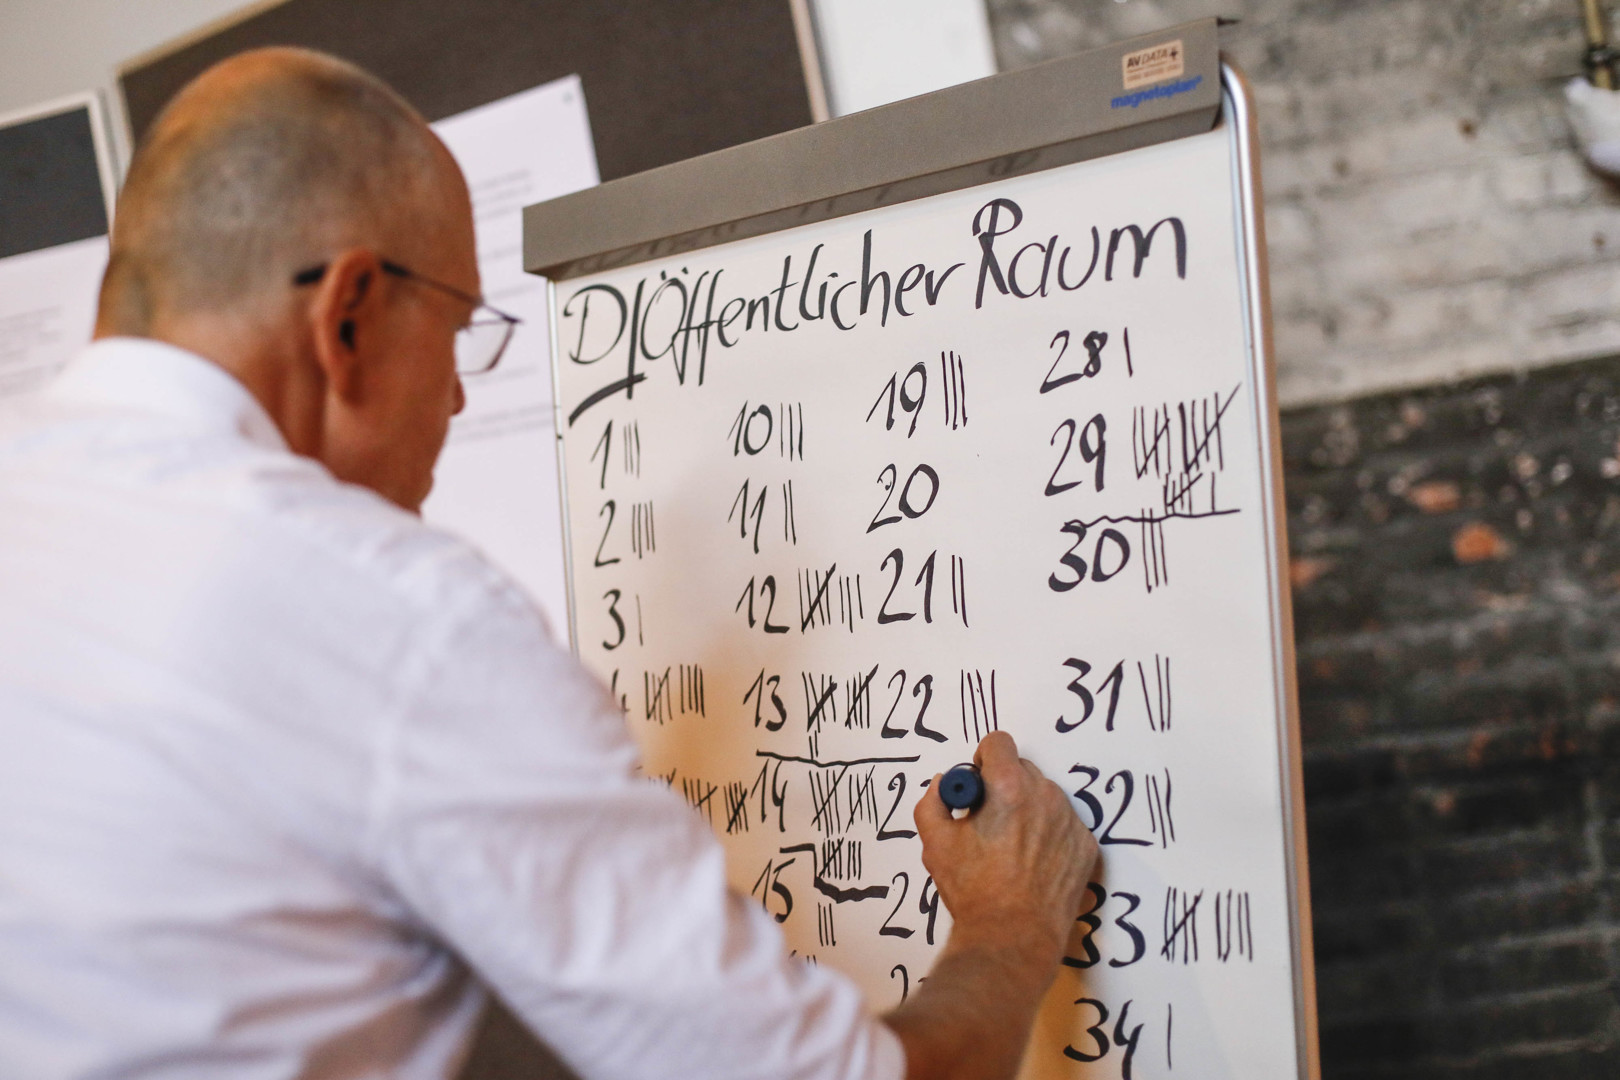 AV DATA
magnetoplan®
D/Öffentlicher Raum
1 |||
2 ||||
3 |
4 卌 ||||
10 |||
11 ||
12 卌 |||
13 卌 卌 ||
14 卌 卌 卌 |||
15 |||
19 |||
20
21 ||
22 ||||
24
28 |
29 卌 卌 卌 |
30 |||
31 |||
32 |||
33 卌 ||||
34 |